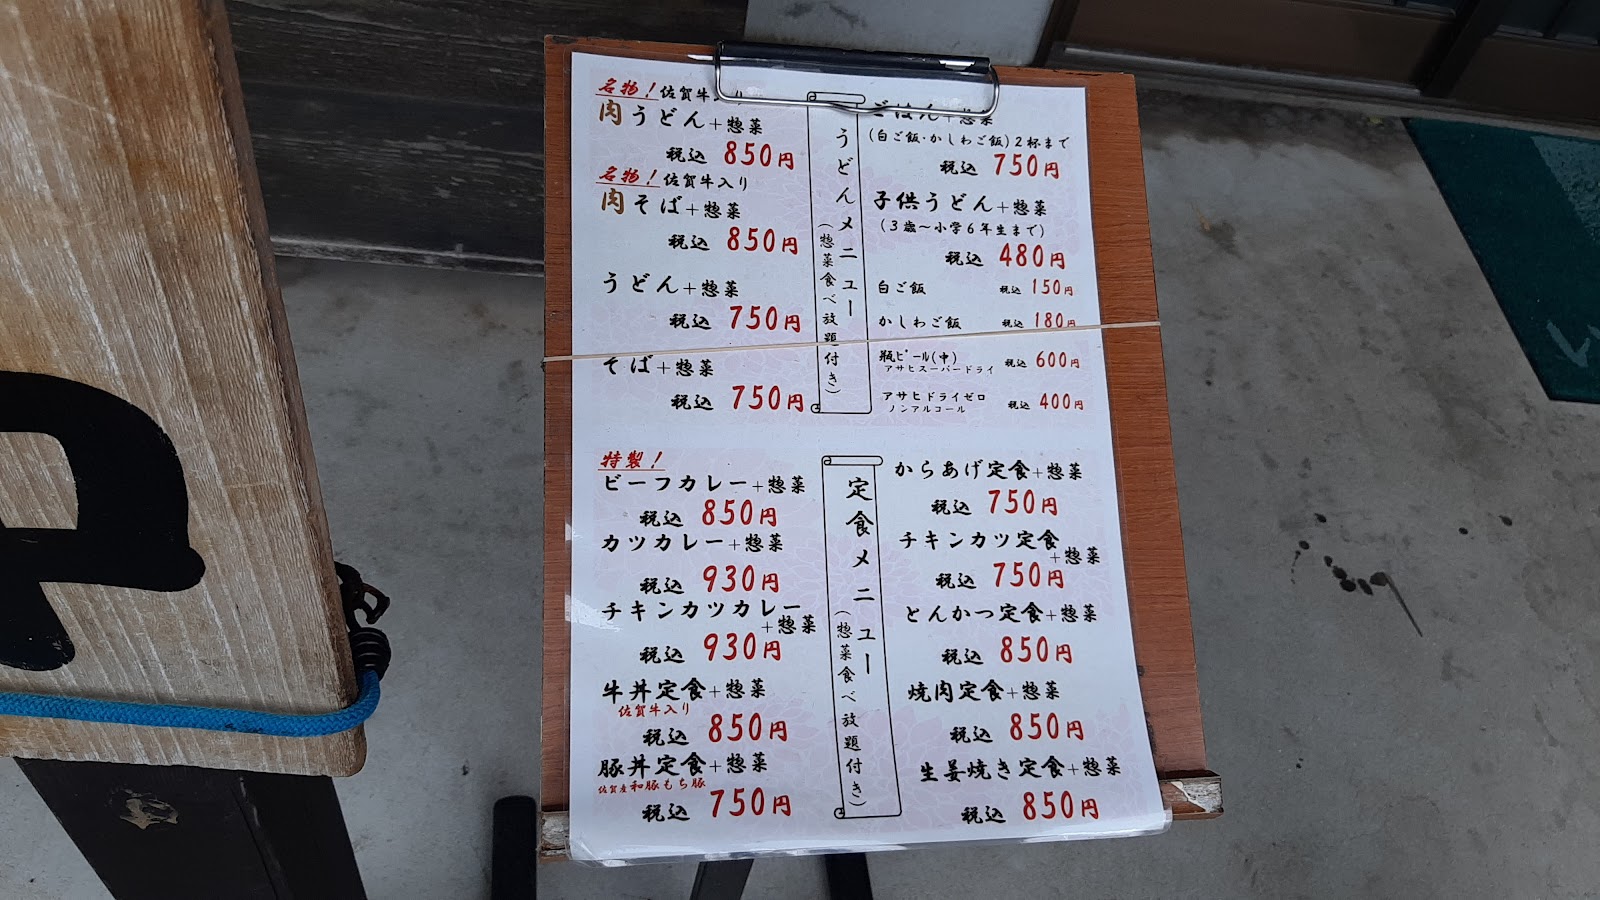 名物！佐賀牛入り
肉うどん＋惣菜
税込 850円
名物！佐賀牛入り
肉そば＋惣菜
税込 850円
うどん＋惣菜
税込 750円
そば＋惣菜
税込 750円
うどんメニュー
（惣菜食べ放題付き）
ごはん＋惣菜
（白ご飯・かしわご飯）２杯まで
税込 750円
子供うどん＋惣菜
（３歳～小学６年生まで）
税込 480円
白ご飯 税込 150円
かしわご飯 税込 180円
瓶ビール(中) 税込 600円
アサヒスーパードライ
アサヒドライゼロ 税込 400円
ノンアルコール
特製！
ビーフカレー＋惣菜
税込 850円
カツカレー＋惣菜
税込 930円
チキンカツカレー
＋惣菜
税込 930円
牛丼定食＋惣菜
佐賀牛入り
税込 850円
豚丼定食＋惣菜
佐賀産和豚もち豚
税込 750円
定食メニュー
（惣菜食べ放題付き）
からあげ定食＋惣菜
税込 750円
チキンカツ定食
＋惣菜
税込 750円
とんかつ定食＋惣菜
税込 850円
焼肉定食＋惣菜
税込 850円
生姜焼き定食＋惣菜
税込 850円